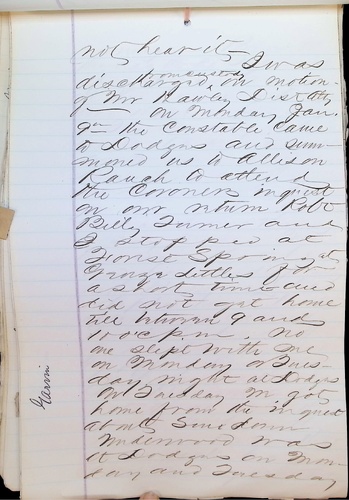 not hear it— I was
from custody
discharged, on motion
of Mr Hawley Dist Atty
on Monday Jan.
9th the Constable came
to Dodgns and sum-
moned us to Allison
Ranch to attend
the Coroners inquest
on our return Robt
Billy Turner and
I stopped at
Horse Spring at
George Settles for
a short time and
did not get home
till between 9 and
10 oc p.m. No
one slept with me
on Monday or Tues-
day night at Dodgns
On Tuesday we got
home from the inquest
about Sundown
Underwood was
at Dodgns on Mon-
day and Tuesday
Garvin